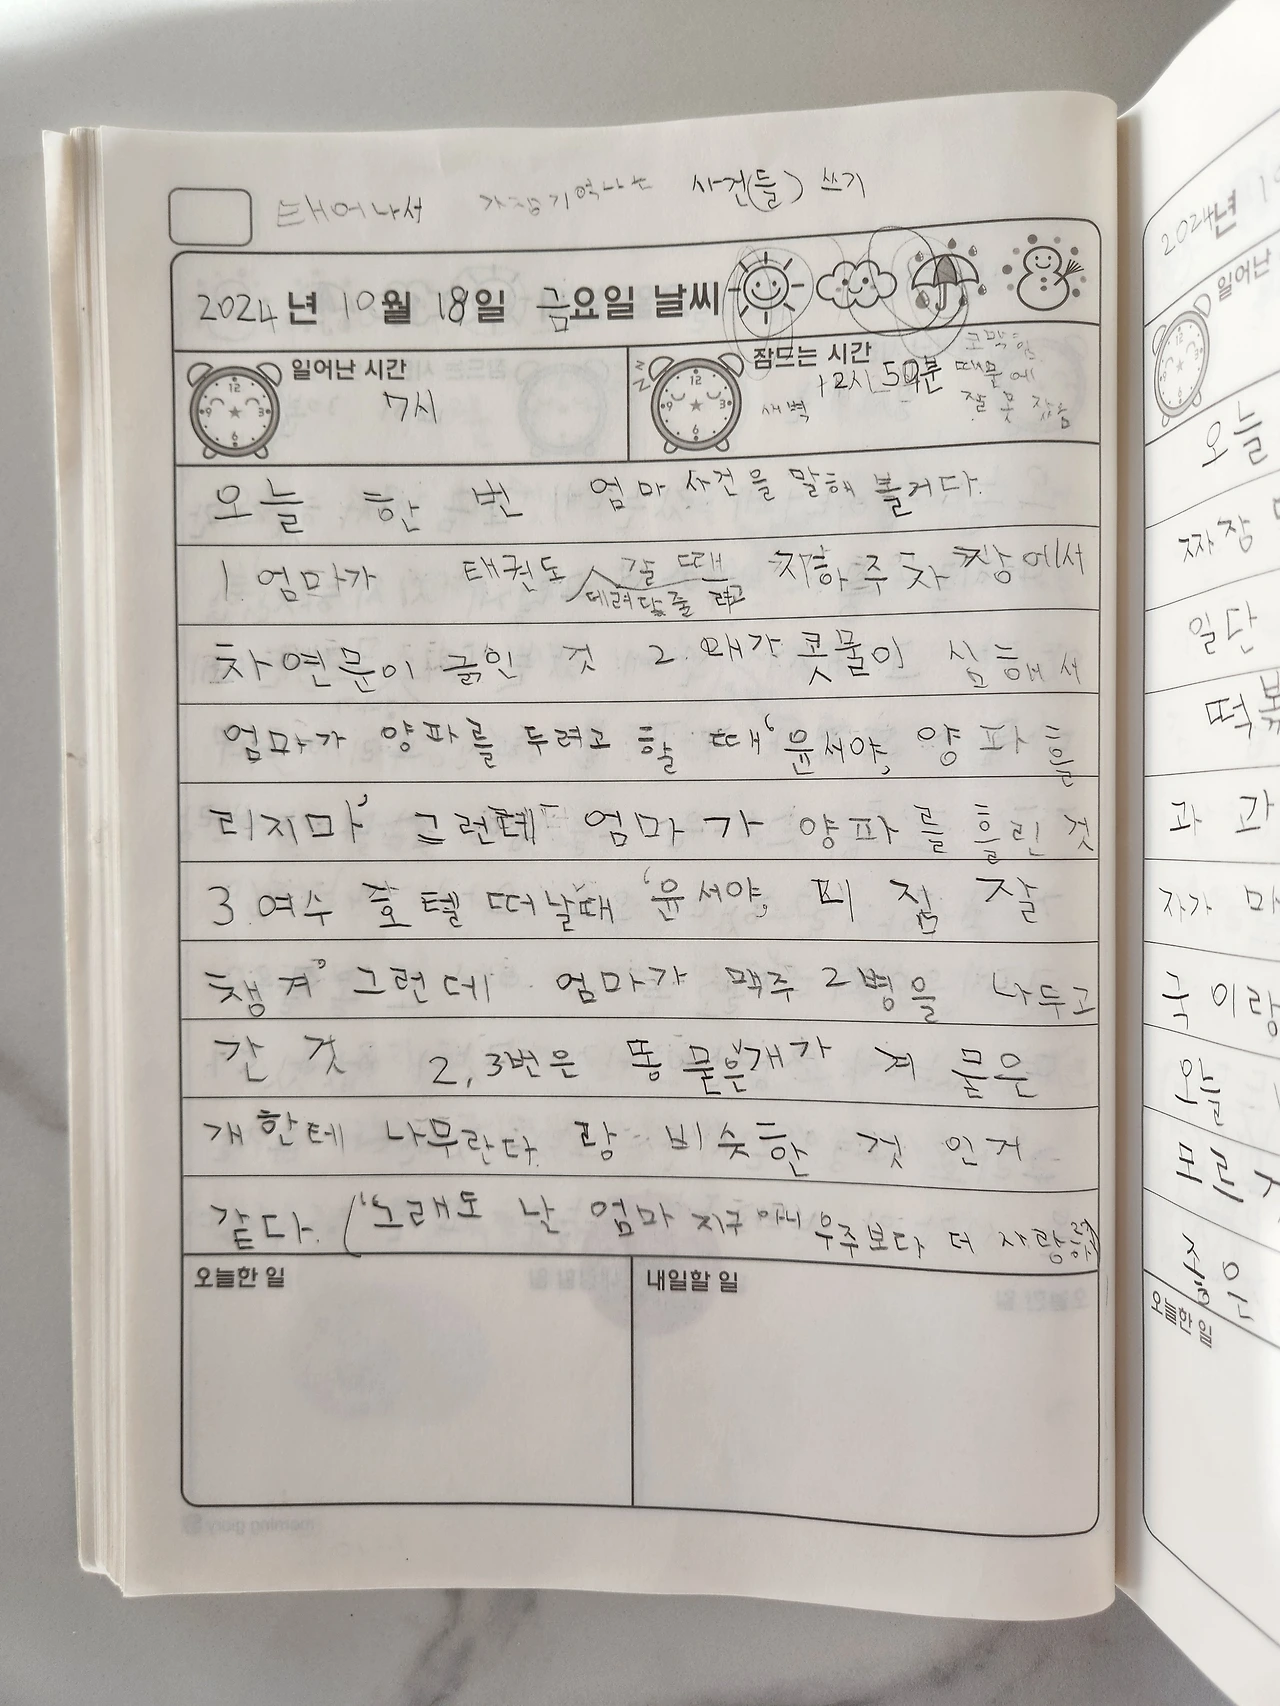 태어나서 가장기억나는 사건(들) 쓰기
2024년 10월 18일 금요일 날씨
일어난 시간
7시
잠드는 시간
새벽 12시 50분
코막힘
때문에
잘 못 잤음
오늘 한 번 엄마 사건을 말해 볼거다.
1. 엄마가 태권도 갈 땐 지하주차장에서
데려다줄 려고
차 연문이 긁인 것 2. 내가 콧물이 심해서
엄마가 양파를 두려고 할 때 '윤서야, 양파 흘
리지마' 그런데 엄마가 양파를 흘린 것
3. 여수 호텔 떠날때 '윤서야, 피 짐 잘
챙겨' 그런데 엄마가 맥주 2병을 나두고
간 것 2, 3번은 똥 묻은개가 겨 묻은
개한테 나무란다 랑 비슷한 것 인거
같다. ("노래도 난 엄마 지구 아니 우주보다 더 사랑해)
오늘한 일
내일할 일
2024년
일어난
오늘
짜장
일단
떡볶
과 
자가
국이랑
오늘
모르
좋은
오늘한 일